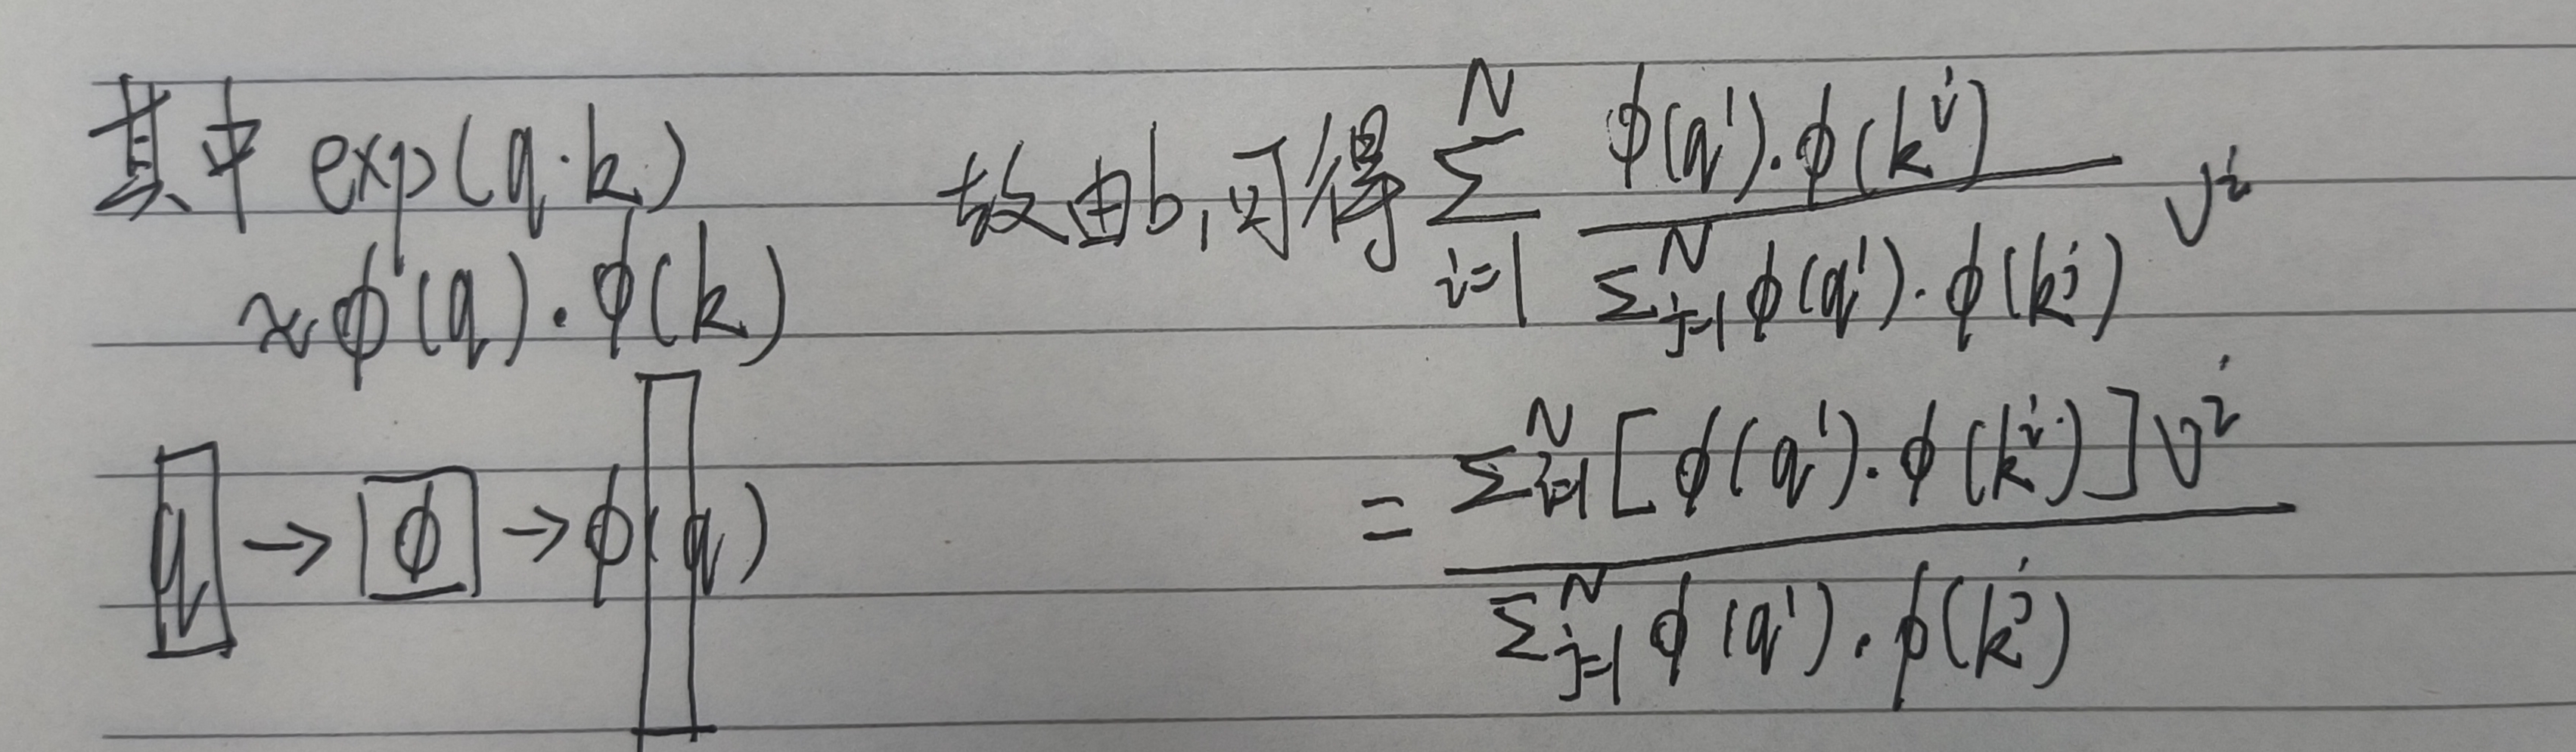 其中 exp(q·k)
≈ϕ(q)·ϕ(k)
q → ϕ → ϕ(q)
故由b,可得 \sum_{i=1}^{N} \frac{ϕ(q^1)·ϕ(k^i)}{\sum_{j=1}^{N} ϕ(q^1)·ϕ(k^j)} v^i
= \frac{\sum_{i=1}^{N} [ϕ(q^1)·ϕ(k^i)] v^i}{\sum_{j=1}^{N} ϕ(q^1)·ϕ(k^j)}